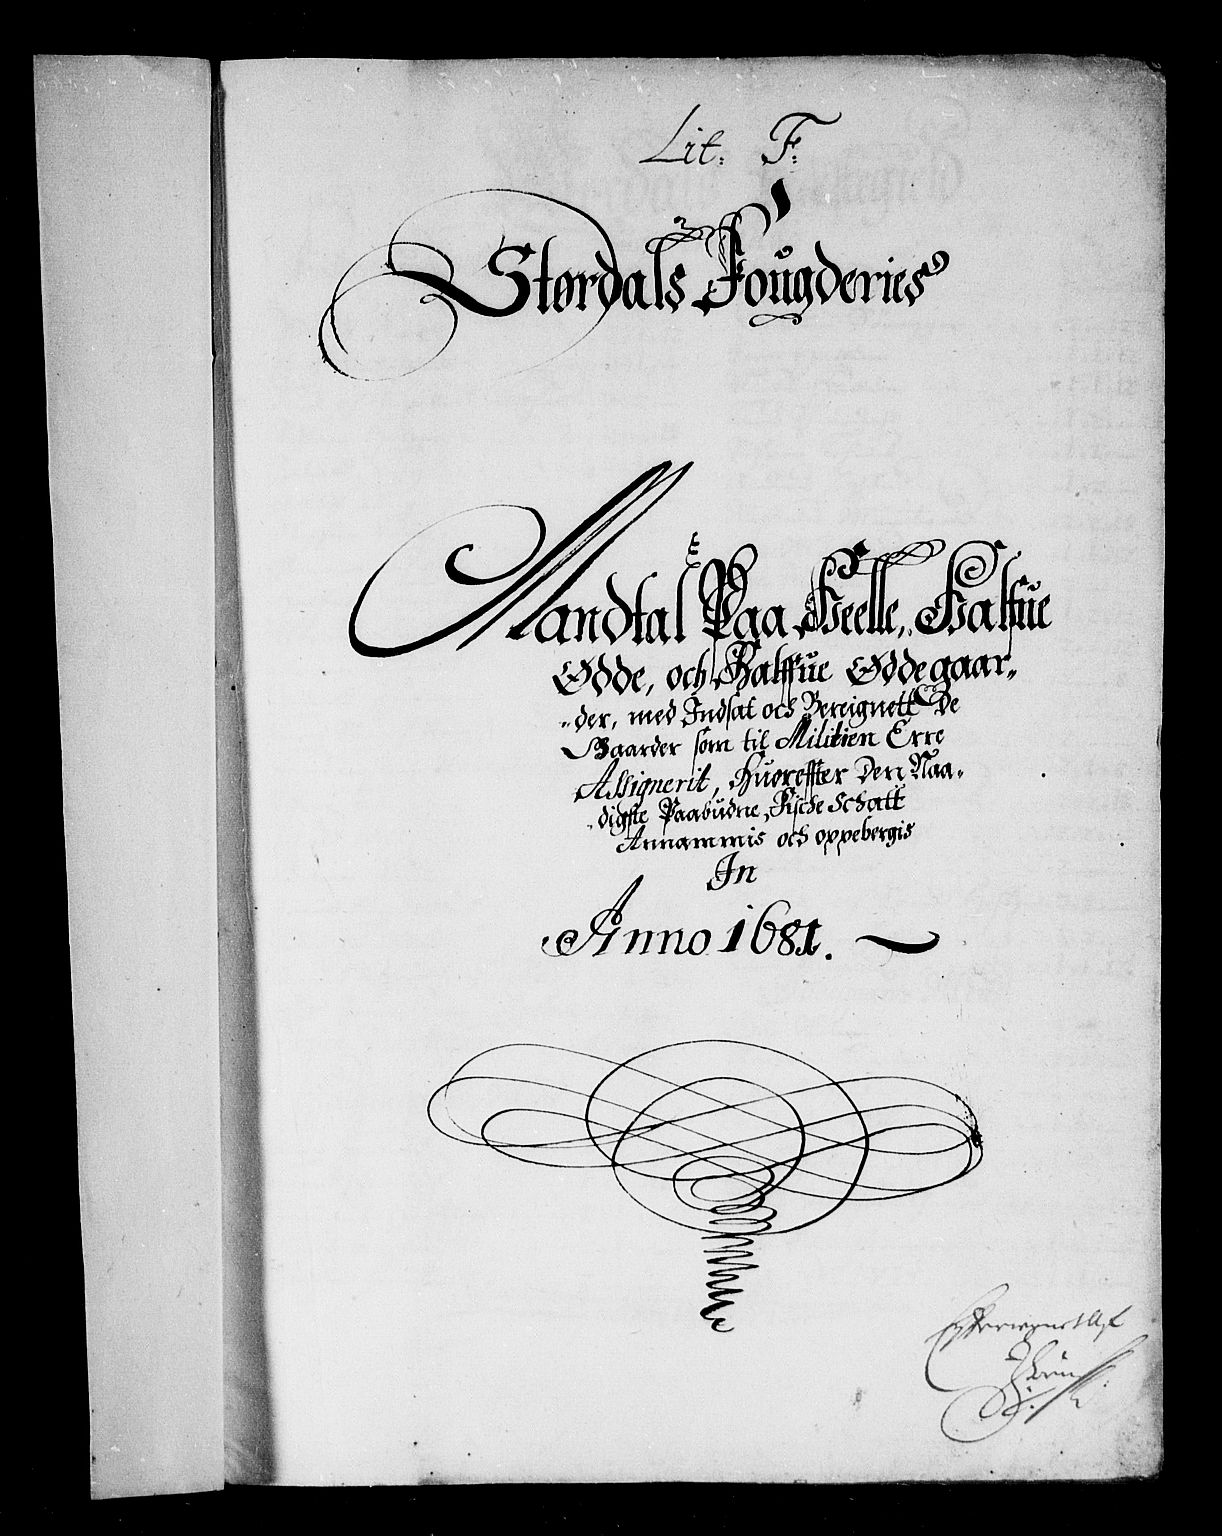 Lit. F.
Størdals Fougderies
Mandtal Paa Heelle, Halfue
Ødde, och Halffue Øddegaar-
der, med Indsat och Bereignett De
Gaarder som til Militien Erre
Assignerit, Huoreffter Den Naa-
digste Paabudne Rische Schatt
Annammis och oppebergis
In
Anno 1681.